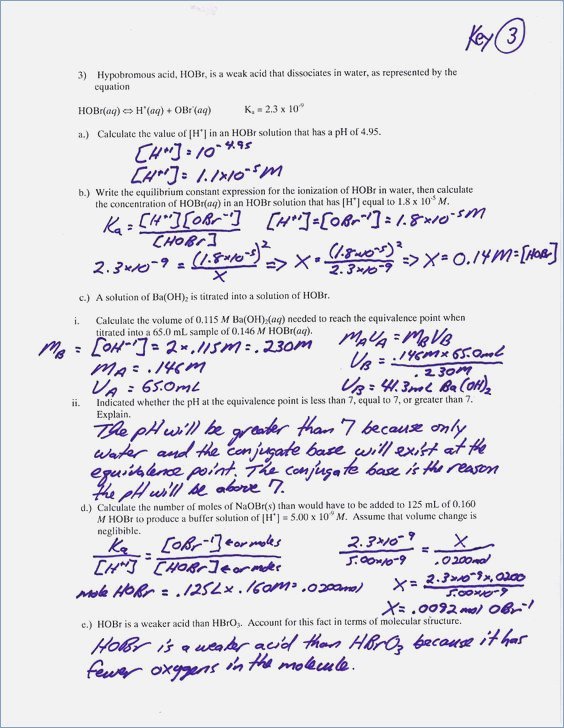 Key 3
3) Hypobromous acid, HOBr, is a weak acid that dissociates in water, as represented by the
equation
HOBr(aq) ⇔ H⁺(aq) + OBr⁻(aq) Kₐ = 2.3 x 10⁻⁹
a.) Calculate the value of [H⁺] in an HOBr solution that has a pH of 4.95.
[H⁺¹] = 10⁻⁴·⁹⁵
[H⁺¹] = 1.1x10⁻⁵ M
b.) Write the equilibrium constant expression for the ionization of HOBr in water, then calculate
the concentration of HOBr(aq) in an HOBr solution that has [H⁺] equal to 1.8 x 10⁻⁵ M.
Ka = [H⁺¹][OBr⁻¹] / [HOBr] [H⁺¹] = [OBr⁻¹] = 1.8x10⁻⁵ M
2.3x10⁻⁹ = (1.8x10⁻⁵)² / X => X = (1.8x10⁻⁵)² / 2.3x10⁻⁹ => X = 0.14M = [HOBr]
c.) A solution of Ba(OH)₂ is titrated into a solution of HOBr.
i. Calculate the volume of 0.115 M Ba(OH)₂(aq) needed to reach the equivalence point when
titrated into a 65.0 mL sample of 0.146 M HOBr(aq).
M_B = [OH⁻¹] = 2 x .115M = .230M
M_A = .146M
V_A = 65.0mL
M_A V_A = M_B V_B
V_B = .146M x 65.0mL / .230M
V_B = 41.3mL Ba(OH)₂
ii. Indicated whether the pH at the equivalence point is less than 7, equal to 7, or greater than 7.
Explain.
The pH will be greater than 7 because only
water and the conjugate base will exist at the
equivalence point. The conjugate base is the reason
the pH will be above 7.
d.) Calculate the number of moles of NaOBr(s) than would have to be added to 125 mL of 0.160
M HOBr to produce a buffer solution of [H⁺] = 5.00 x 10⁻⁹ M. Assume that volume change is
neglibible.
Ka / [H⁺¹] = [OBr⁻¹] ← or moles / [HOBr] ← or moles
mole HOBr = .125L x .160M = .0200mol
2.3x10⁻⁹ / 5.00x10⁻⁹ = X / .0200mol
X = 2.3x10⁻⁹ x .0200 / 5.00x10⁻⁹
X = .0092 mol OBr⁻¹
e.) HOBr is a weaker acid than HBrO₃. Account for this fact in terms of molecular structure.
HOBr is a weaker acid than HBrO₃ because it has
fewer oxygens in the molecule.